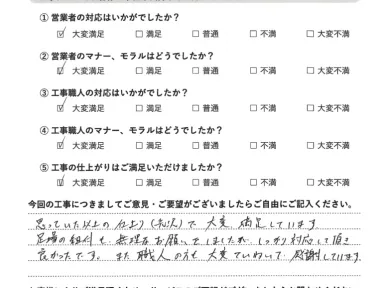 ① 営業者の対応はいかがでしたか？
☑ 大変満足 □ 満足 □ 普通 □ 不満 □ 大変不満
② 営業者のマナー、モラルはどうでしたか？
☑ 大変満足 □ 満足 □ 普通 □ 不満 □ 大変不満
③ 工事職人の対応はいかがでしたか？
☑ 大変満足 □ 満足 □ 普通 □ 不満 □ 大変不満
④ 工事職人のマナー、モラルはどうでしたか？
☑ 大変満足 □ 満足 □ 普通 □ 不満 □ 大変不満
⑤ 工事の仕上がりはご満足いただけましたか？
☑ 大変満足 □ 満足 □ 普通 □ 不満 □ 大変不満
今回の工事につきましてご意見・ご要望がございましたらご自由にご記入ください。
思っていた以上の仕上り()で大変満足しています。
足場の組付も無理なお願いをしましたが、しっかり対応して頂き
良かったです。また職人の方も大変ていねいで感謝しています。